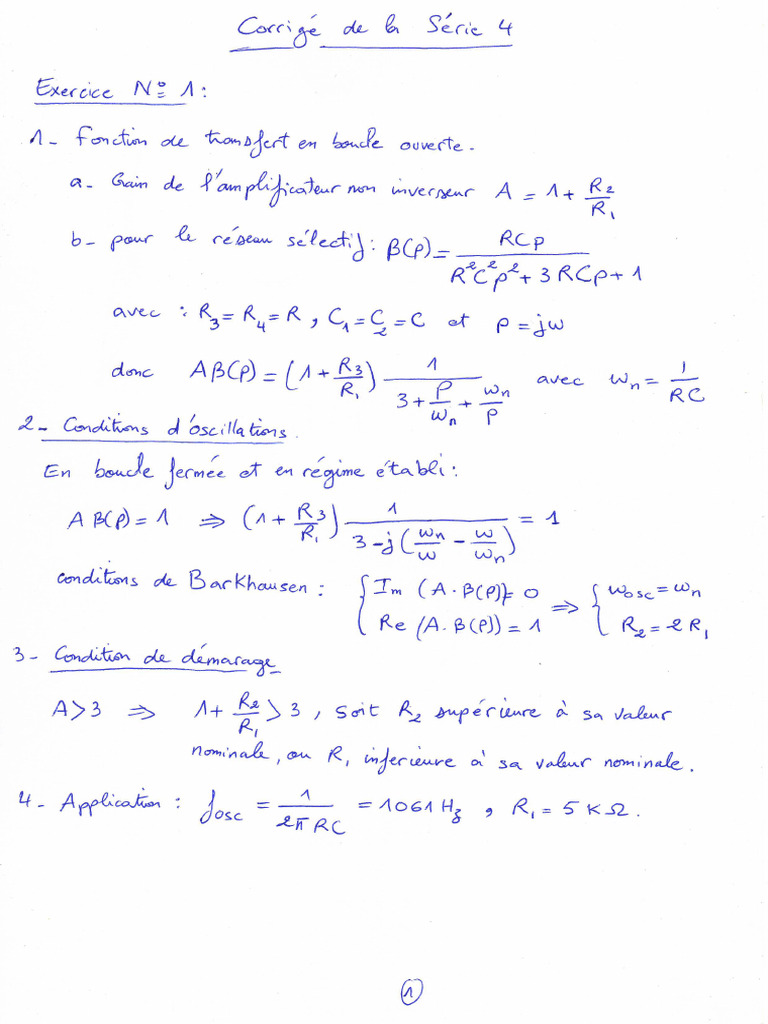 Corrigé de la Série 4
Exercice N° 1 :
1 - Fonction de transfert en boucle ouverte.
a - Gain de l'amplificateur non inverseur A = 1 + R₂/R₁
b - pour le réseau sélectif : β(p) = RCp / (R²C²p² + 3RCp + 1)
avec : R₃ = R₄ = R , C₁ = C₂ = C et p = jω
donc Aβ(p) = (1 + R₃/R₁) 1/(3 + p/ωₙ + ωₙ/p) avec ωₙ = 1/RC
2 - Conditions d'oscillations.
En boucle fermée et en régime établi :
Aβ(p) = 1 ⇒ (1 + R₃/R₁) 1/(3 - j(ωₙ/ω - ω/ωₙ)) = 1
conditions de Barkhausen : { Im (A·β(p)) = 0 ⇒ { ωosc = ωₙ
Re (A·β(p)) = 1 R₂ = 2R₁
3 - Condition de démarage
A > 3 ⇒ 1 + R₂/R₁ > 3 , soit R₂ supérieure à sa valeur
nominale, ou R₁ inferieure à sa valeur nominale.
4 - Application : fosc = 1/(2πRC) = 1061 Hz , R₁ = 5 KΩ.
1